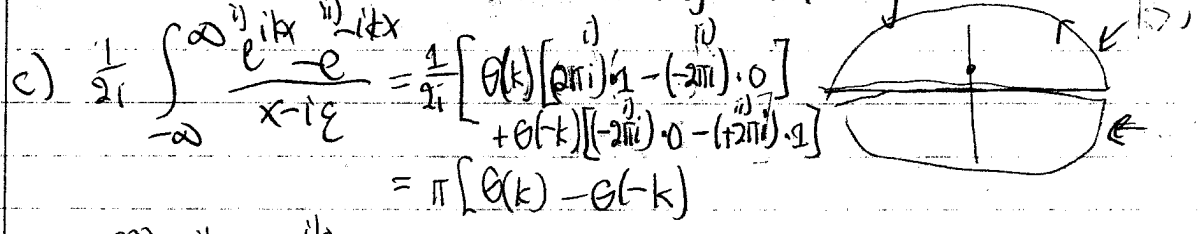 c) 1/2i ∫_{-∞}^{∞} i) e^{ikx} - ii) e^{-ikx} / x-iε = 1/2i [ Θ(k) [ i) (2πi)·1 - ii) (-2πi)·0 ]
+ Θ(-k) [ i) (-2πi)·0 - ii) (+2πi)·1 ]
= π [ Θ(k) - Θ(-k)